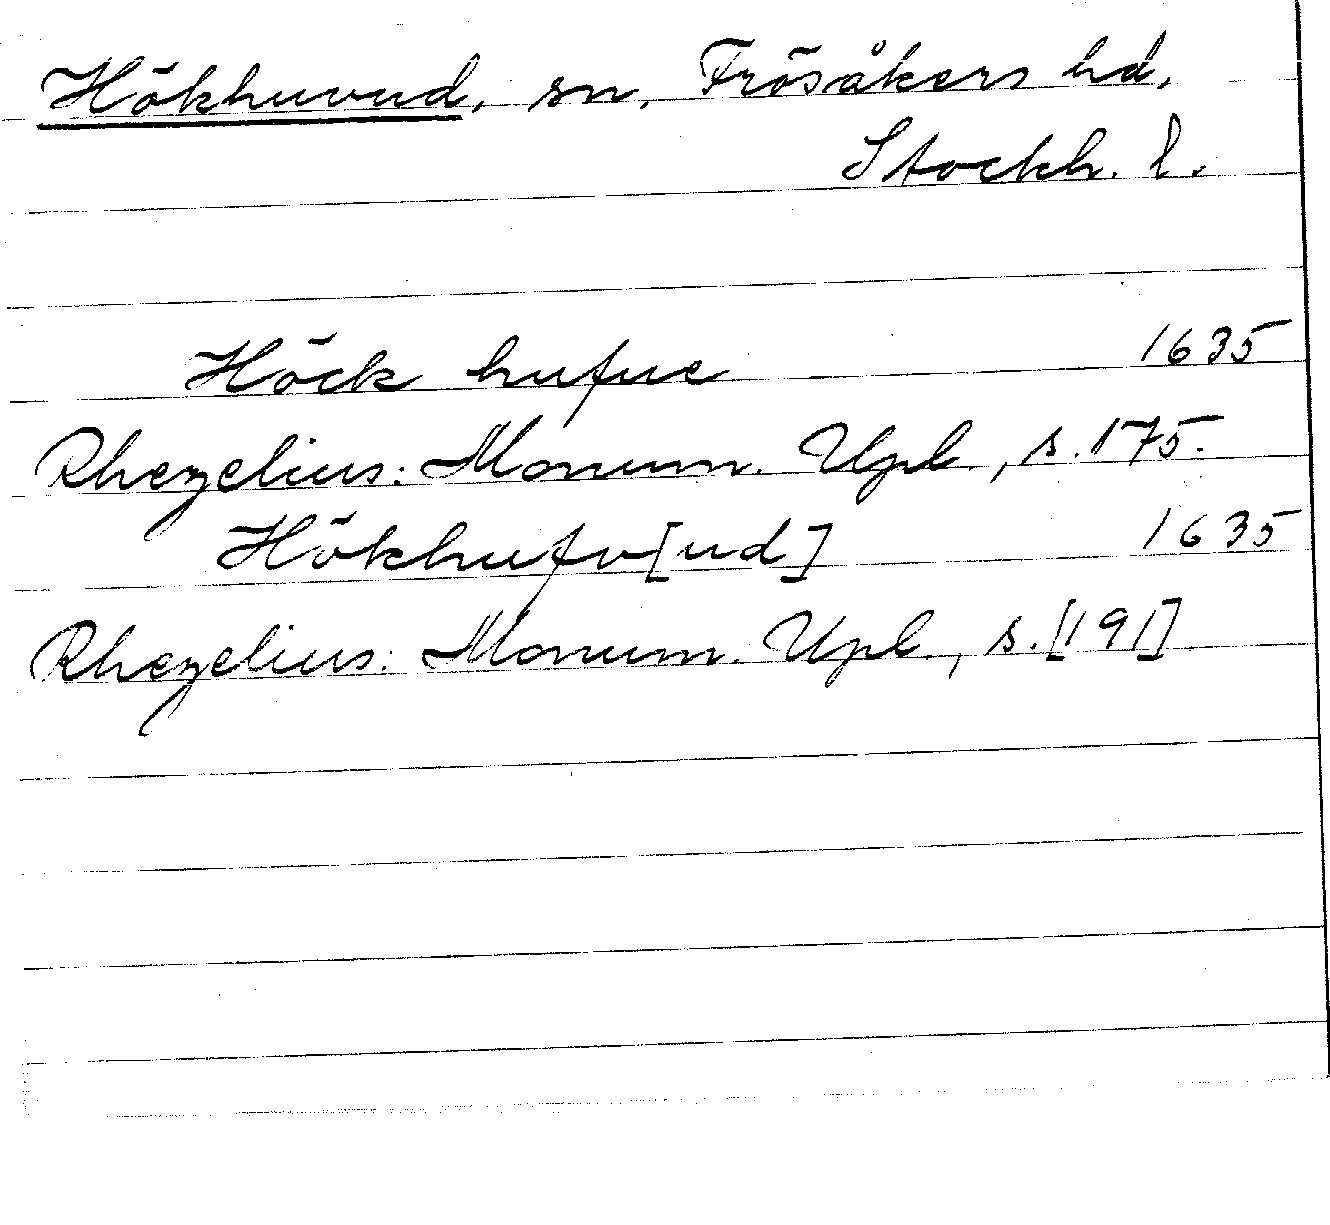 Hökhuvud, sn, Frösåkers hd,
Stockh. l.
Höck hufue 1635
Rhezelius: Monum. Upl., s. 175.
Hökhufv[ud] 1635
Rhezelius: Monum. Upl., s. [191]